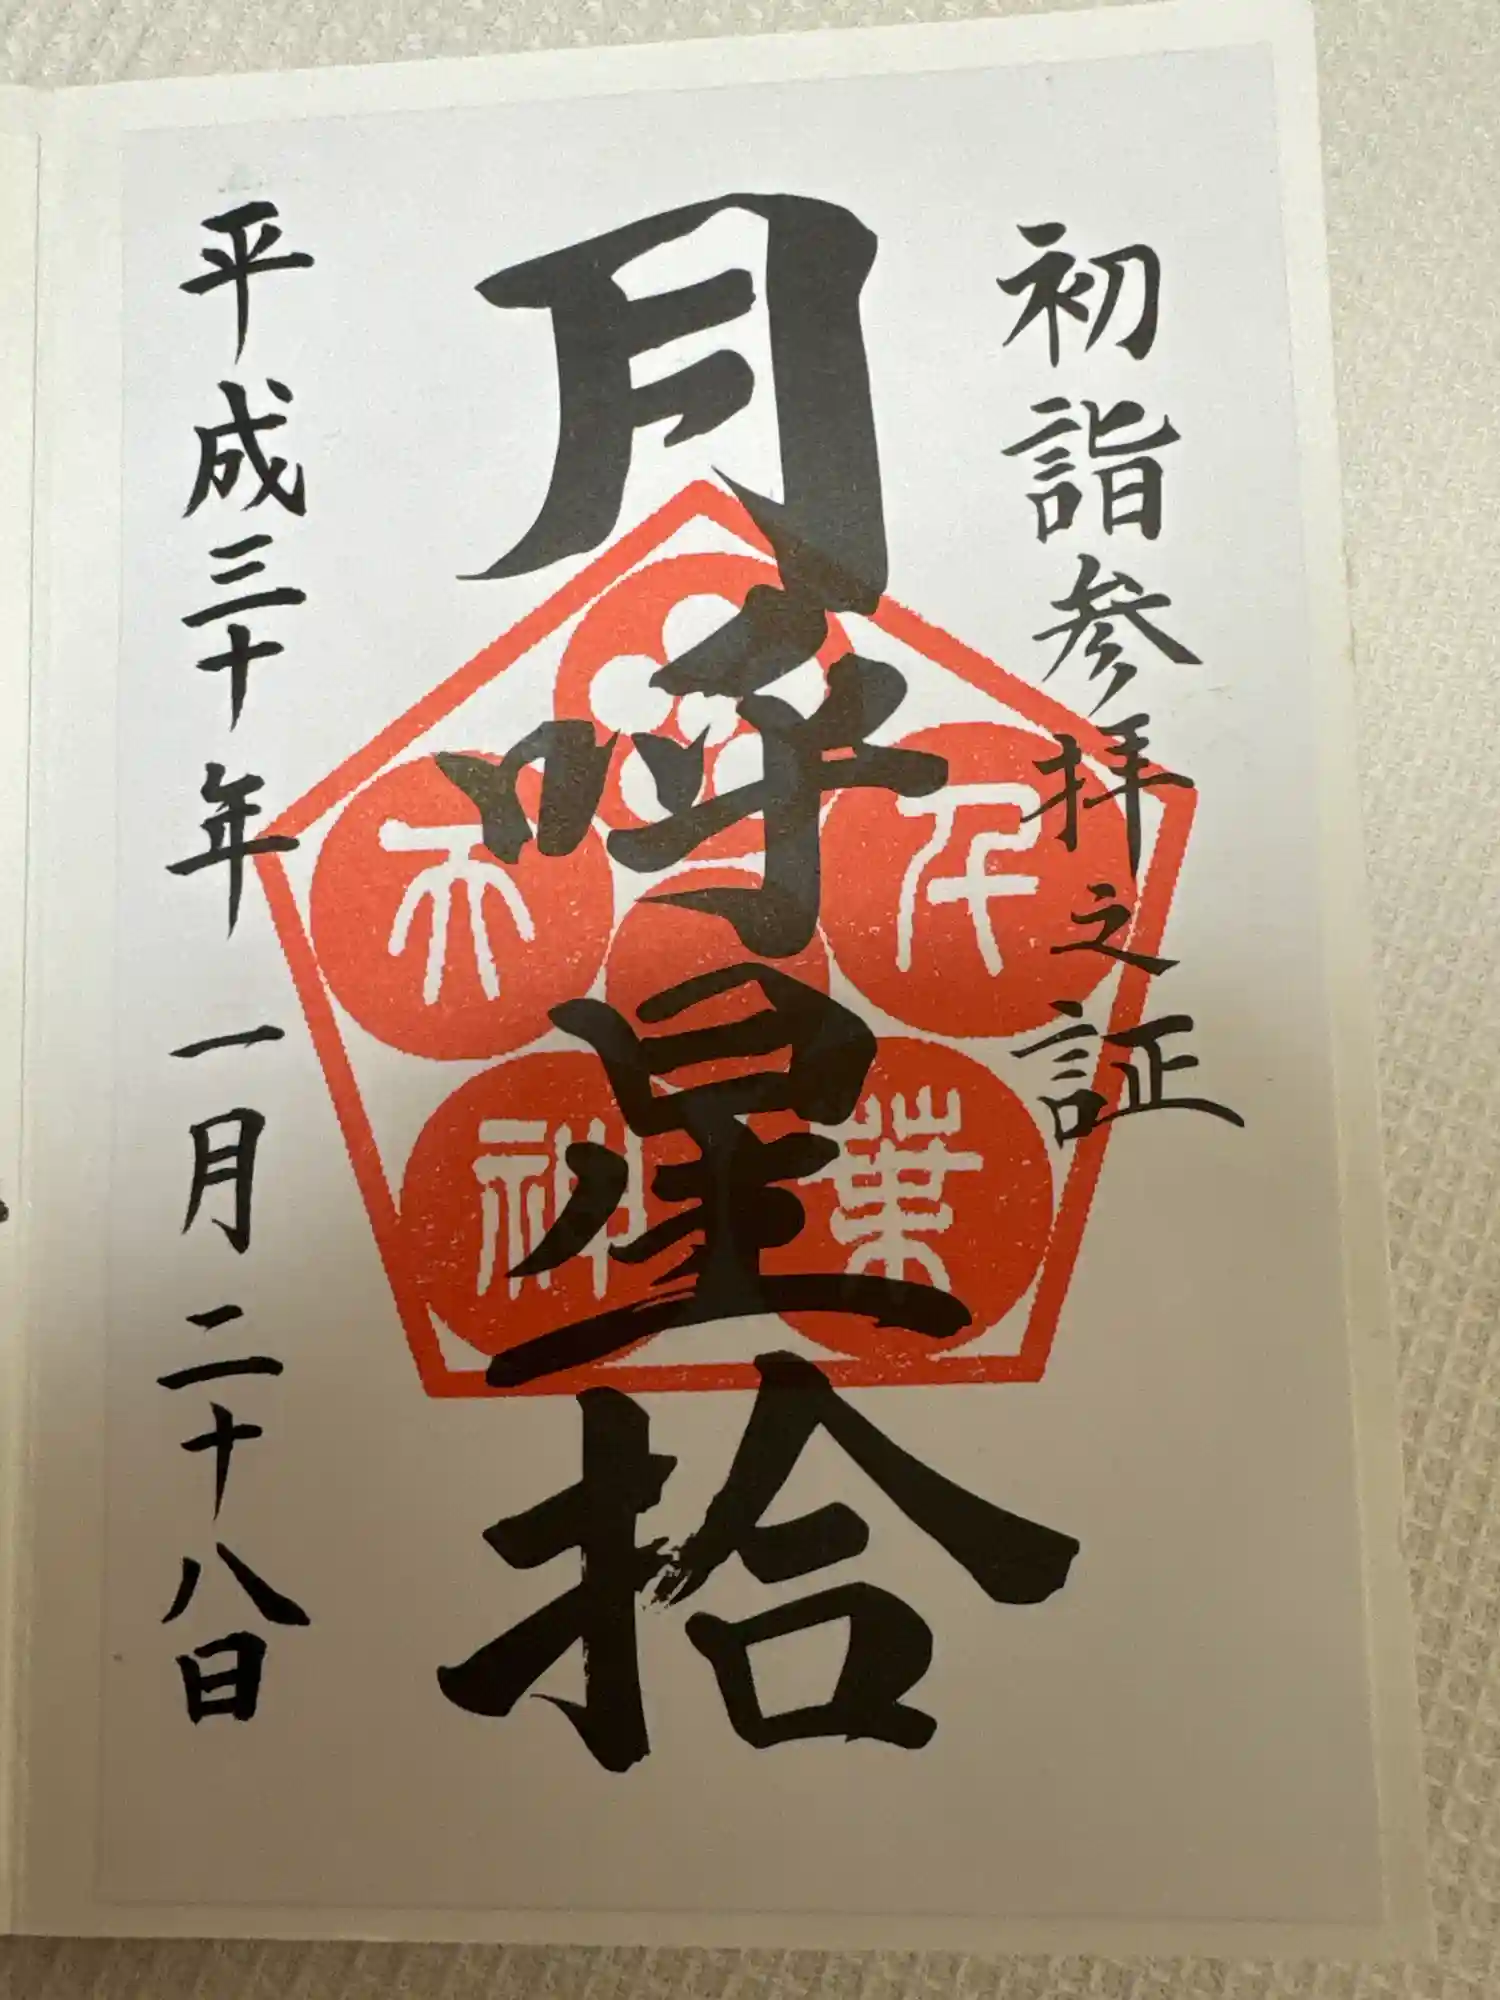 初詣参拝之証
月呼星拾
千葉
天神
平成三十年一月二十八日